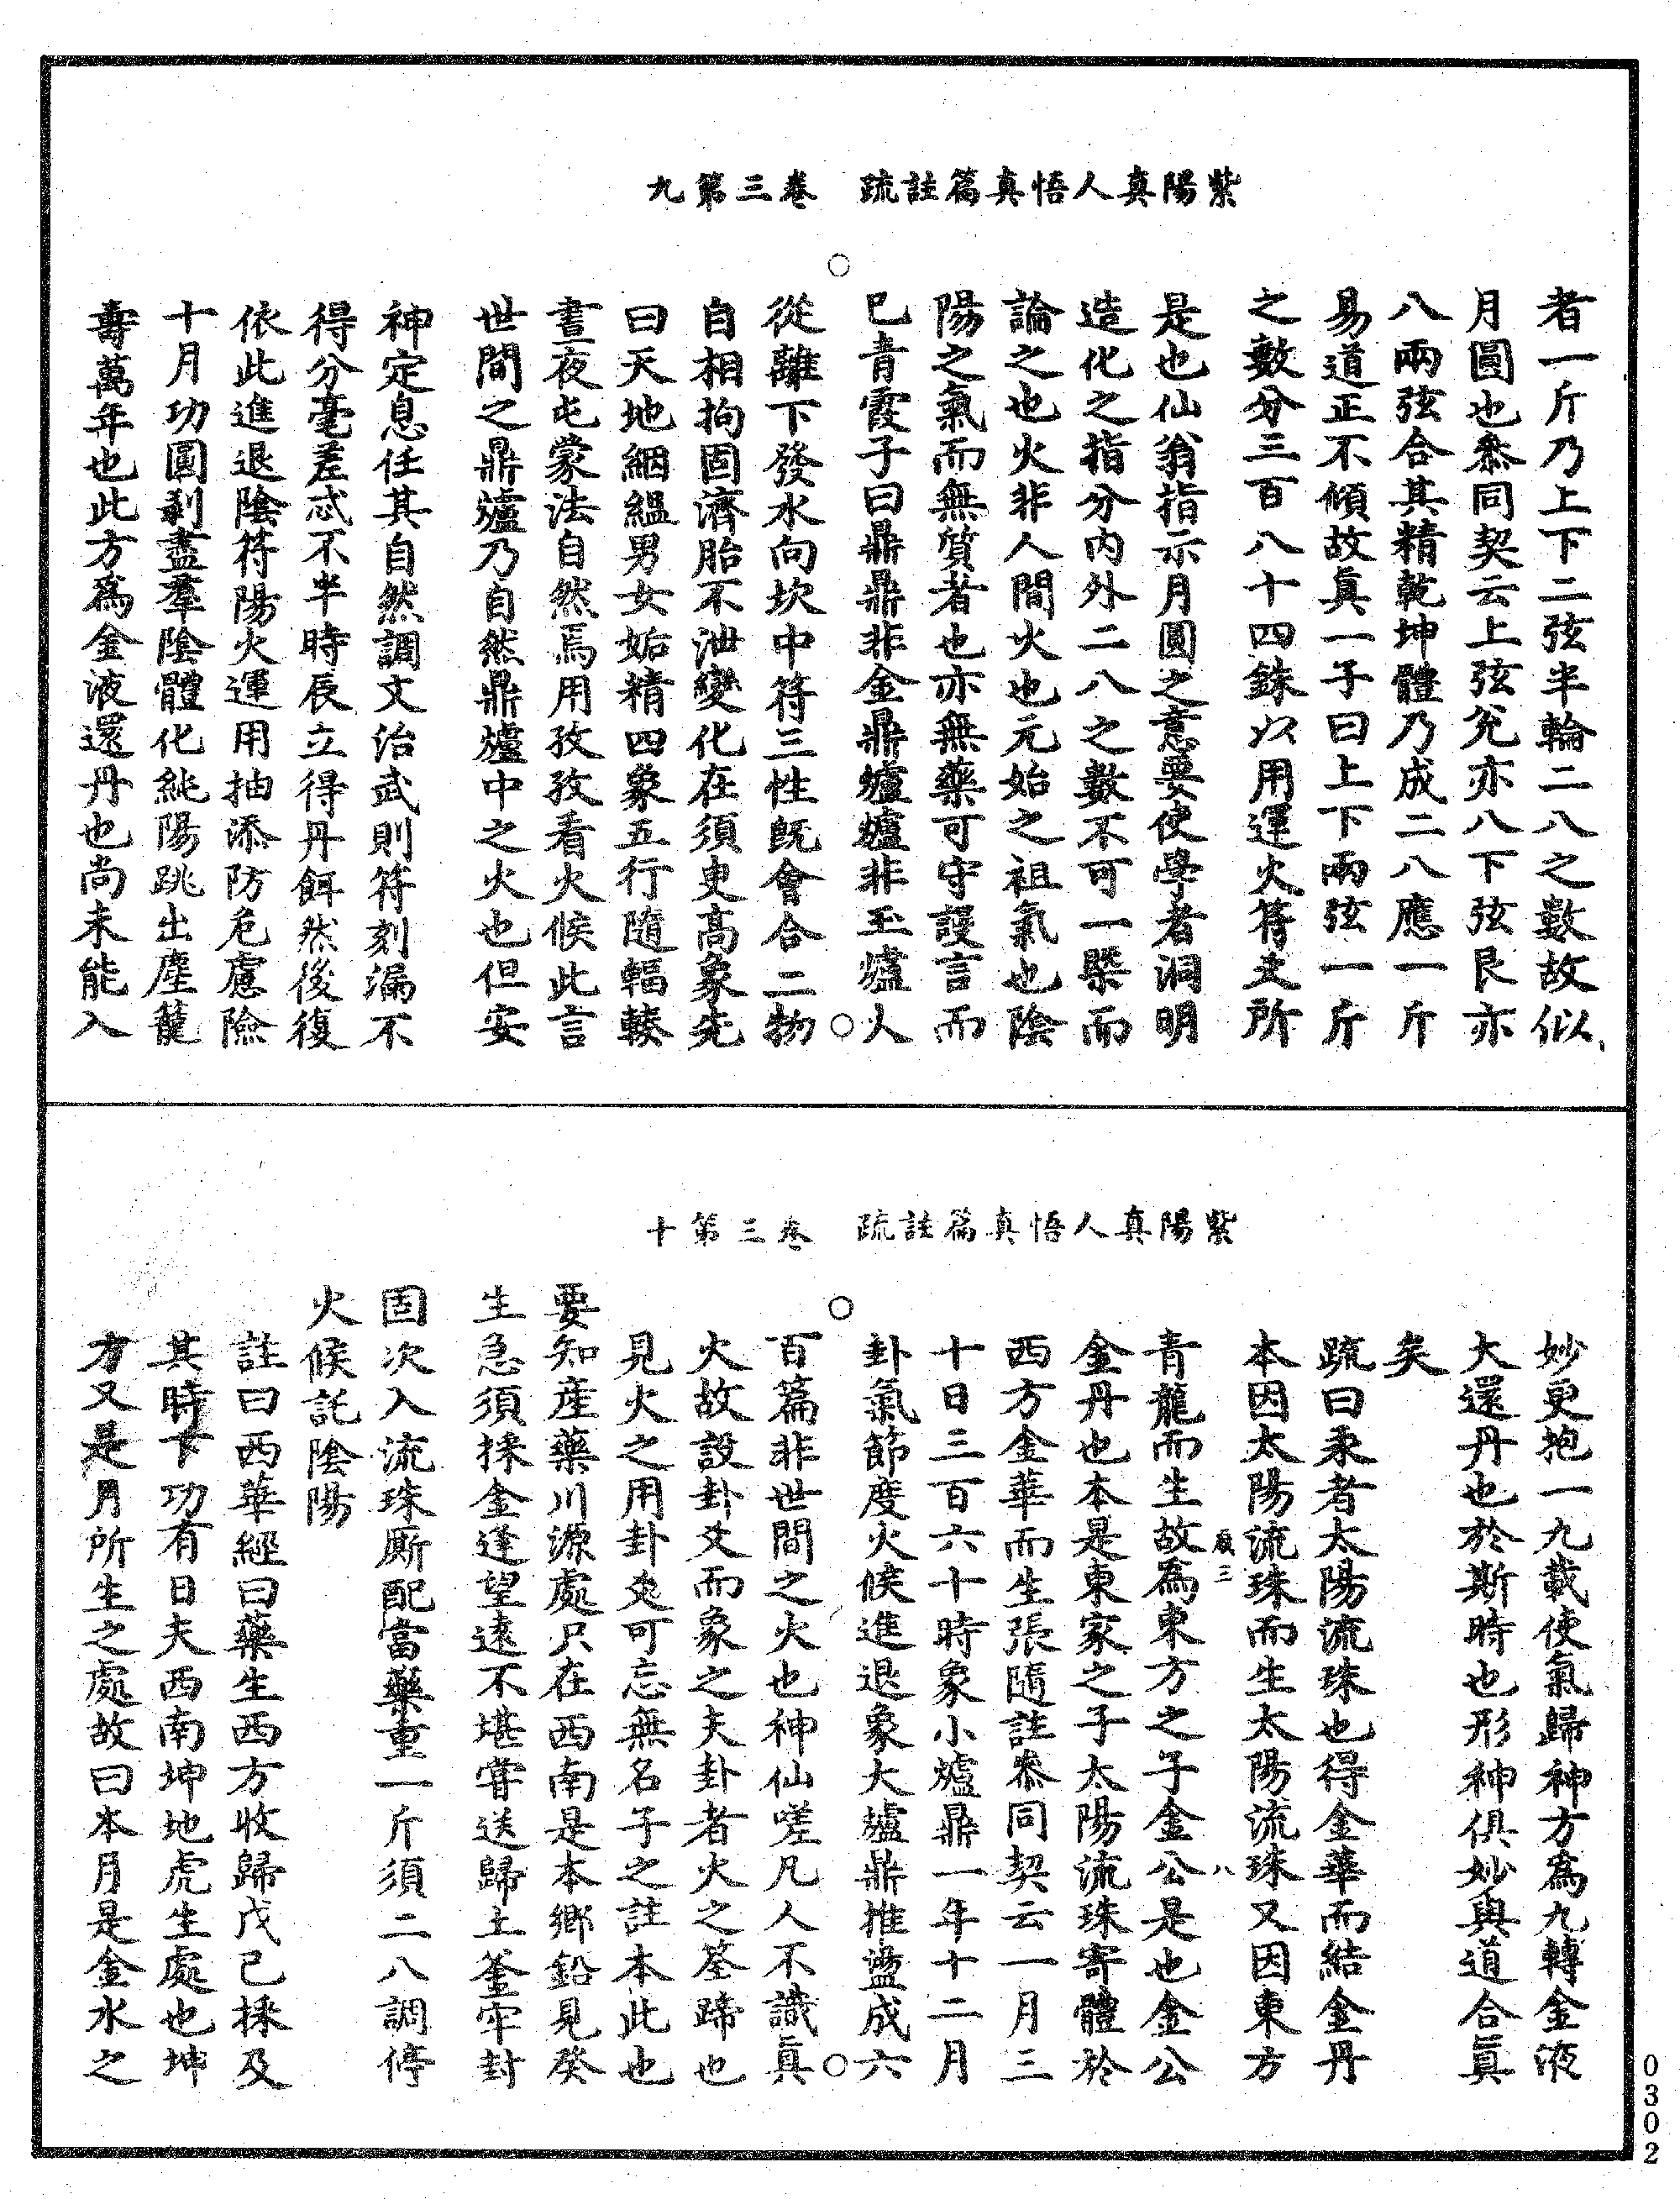 紫陽真人悟真篇註疏　卷三第九
者一斤乃上下二弦半輪二八之數故似
月圓也叅同契云上弦兊亦八下弦艮亦
八兩弦合其精乾坤體乃成二八應一斤
易道正不傾故眞一子曰上下兩弦一斤
之數分三百八十四銖以用運火符夫所
是也仙翁指示月圓之意要使學者洞明
造化之指分内外二八之數不可一槩而
論之也火非人間火也元始之祖氣也陰
陽之氣而無質者也亦無藥可守謾言而
巳青霞子曰鼎鼎非金鼎爐爐非玉爐火
從離下發水向坎中符三性既會合二物
自相拘固濟胎不泄變化在須臾高象先
曰天地絪縕男女姤精四象五行隨輻輳
晝夜屯蒙法自然焉用孜孜看火候此言
世間之鼎爐乃自然鼎爐中之火也但安
神定息任其自然調文治武則符刻漏不
得分毫差忒不半時辰立得丹餌然後復
依此進退陰符陽火運用抽添防危慮險
十月功圓剥盡羣陰體化純陽跳出塵籠
壽萬年也此方爲金液還丹也尚未能入
紫陽真人悟真篇註疏　卷三第十
妙更抱一九載使氣歸神方爲九轉金液
大還丹也於斯時也形神俱妙與道合眞
矣
疏曰汞者太陽流珠也得金華而結金丹
本因太陽流珠而生太陽流珠又因東方
青龍而生故爲東方之子金公是也金公
金丹也本是東家之子太陽流珠寄體於
西方金華而生張隨註叅同契云一月三
十日三百六十時象小爐鼎一年十二月
卦氣節度火候進退象大爐鼎推盪成六
百篇非世間之火也神仙嗟凡人不識眞
火故設卦爻而象之夫卦者火之筌蹄也
見火之用卦爻可忘無名子之註本此也
要知産藥川源處只在西南是本鄉鉛見癸
生急須採金逢望遠不堪甞送歸土釜牢封
固次入流珠厮配當藥重一斤須二八調停
火候託陰陽
註曰西華經曰藥生西方收歸戊己採及
其時下功有日夫西南坤地虎生處也坤
方又是月所生之處故曰本月是金水之
0302